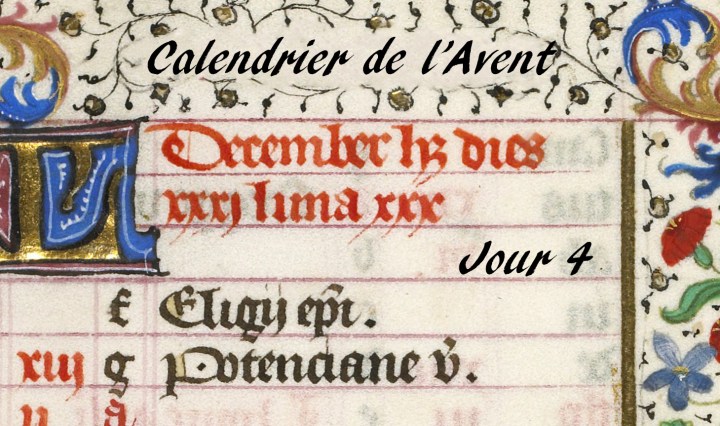 Calendrier de l'Avent
KL
December hꝫ dies
xxxj luna xxx
Jour 4
f Eligij epi.
xiij g Potenciane v̄.
ij a